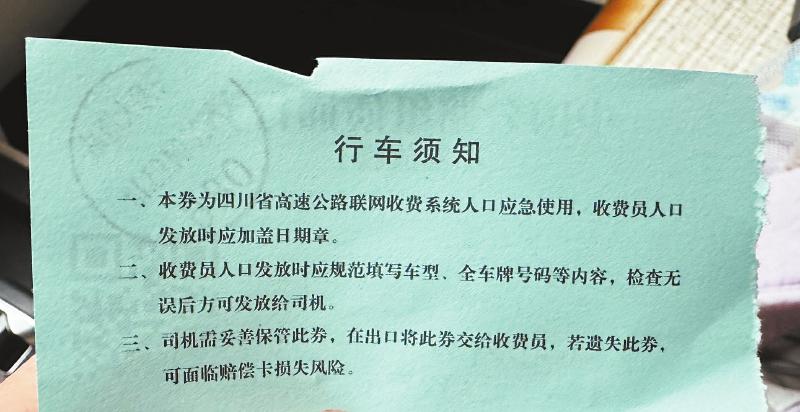 行车须知
一、本券为四川省高速公路联网收费系统人口应急使用，收费员人口
发放时应加盖日期章。
二、收费员人口发放时应规范填写车型、全车牌号码等内容，检查无
误后方可发放给司机。
三、司机需妥善保管此券，在出口将此券交给收费员，若遗失此券，
可面临赔偿卡损失风险。